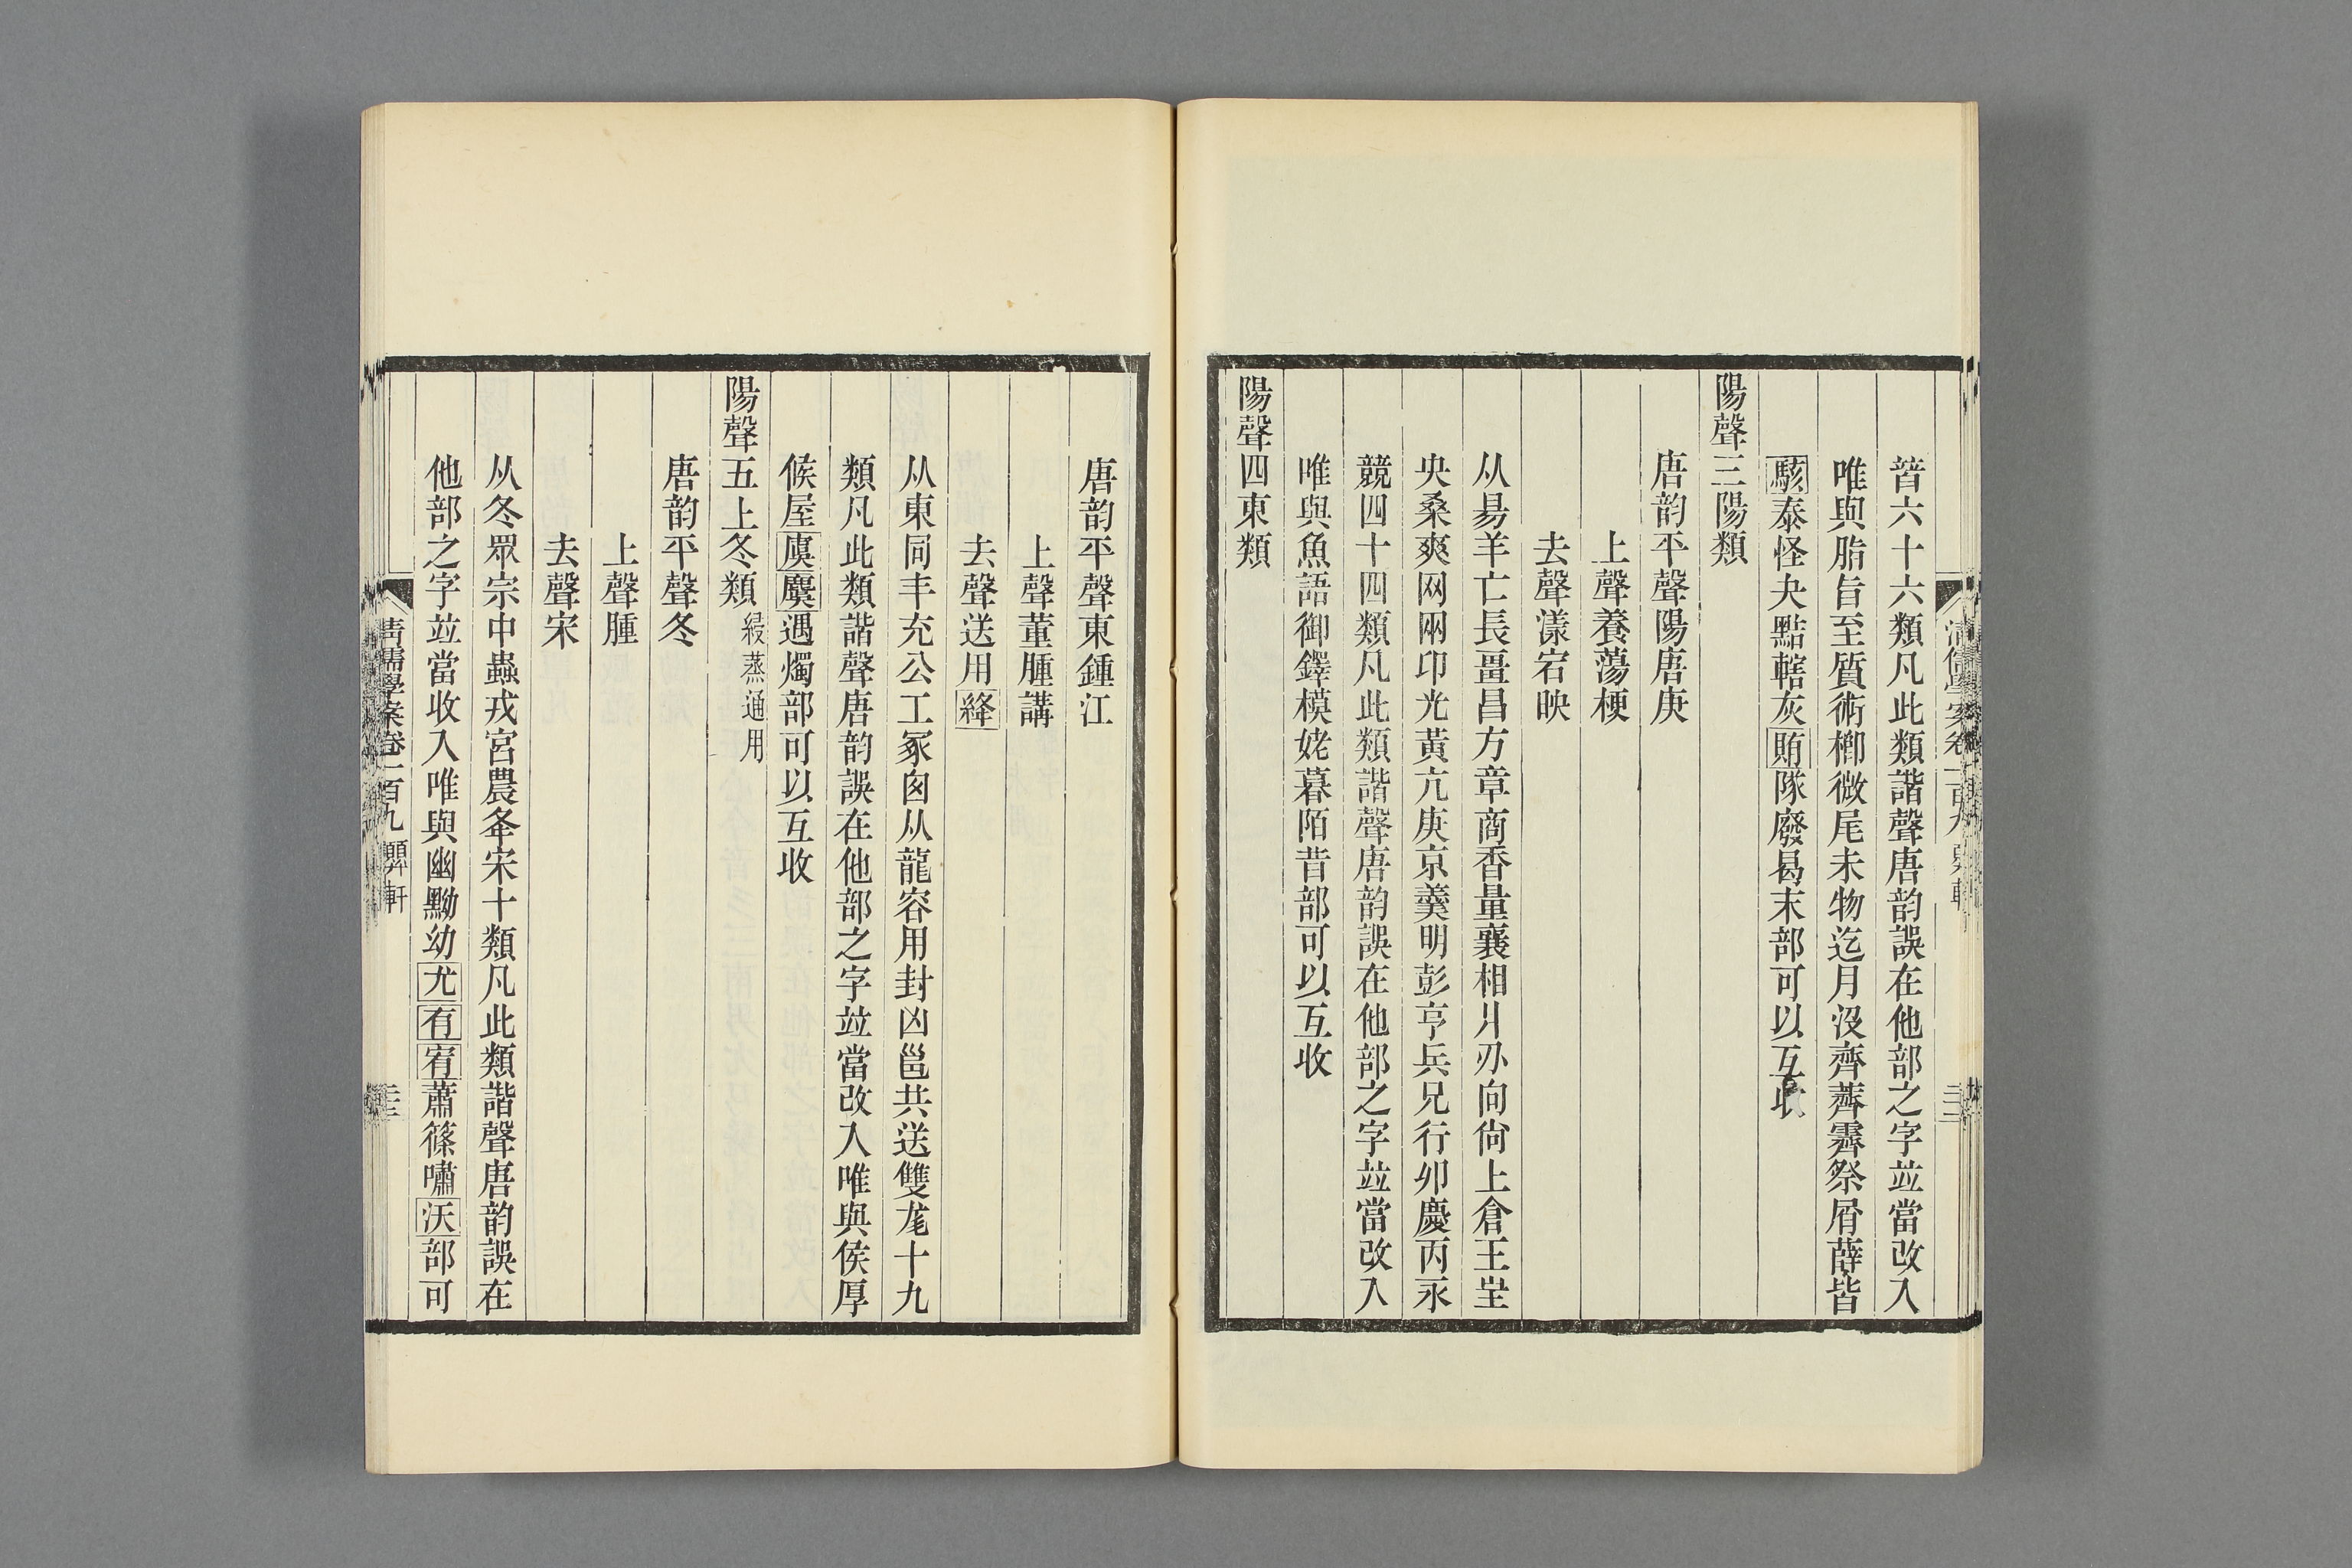 暜六十六類凡此類諧聲唐韵誤在他部之字竝當改入
唯與脂旨至質術櫛微尾未物迄月沒齊薺霽祭屑薛皆
駭泰怪夬黠轄灰賄隊廢曷末部可以互收
陽聲三陽類
唐韵平聲陽唐庚
上聲養蕩梗
去聲漾宕映
从昜羊亡長畺昌方章商香量襄相爿刅向尙上倉王㞷
央桑爽网兩卬光黃亢庚京羹明彭亨兵兄行卯慶丙永
競四十四類凡此類諧聲唐韵誤在他部之字竝當改入
唯與魚語御鐸模姥暮陌昔部可以互收
陽聲四東類
唐韵平聲東鍾江
上聲董腫講
去聲送用絳
从東同丰充公工冢囪从龍容用封凶邕共送雙尨十九
類凡此類諧聲唐韵誤在他部之字竝當改入唯與侯厚
候屋虞麌遇燭部可以互收
陽聲五上冬類 緩蒸通用
唐韵平聲冬
上聲腫
去聲宋
从冬眾宗中蟲戎宮農夅宋十類凡此類諧聲唐韵誤在
他部之字竝當收入唯與幽黝幼尤有宥蕭篠嘯沃部可
清儒學案卷一百九 顨軒